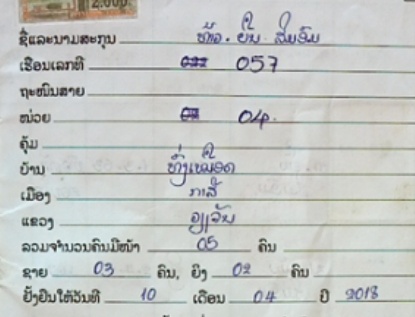 2.000
ຊື່ແລະນາມສະກຸນ ທ້າວ. ຍັນ
ເຮືອນເລກທີ 057
ຖະໜົນສາຍ
ໜ່ວຍ 04.
ຄຸ້ມ
ບ້ານ
ເມືອງ ກາສີ
ແຂວງ ວຽງຈັນ
ລວມຈຳນວນຄົນມີໜ້າ 05 ຄົນ
ຊາຍ 03 ຄົນ, ຍິງ 02 ຄົນ
ຢັ້ງຢືນໃຫ້ວັນທີ 10 ເດືອນ 04 ປີ 2018